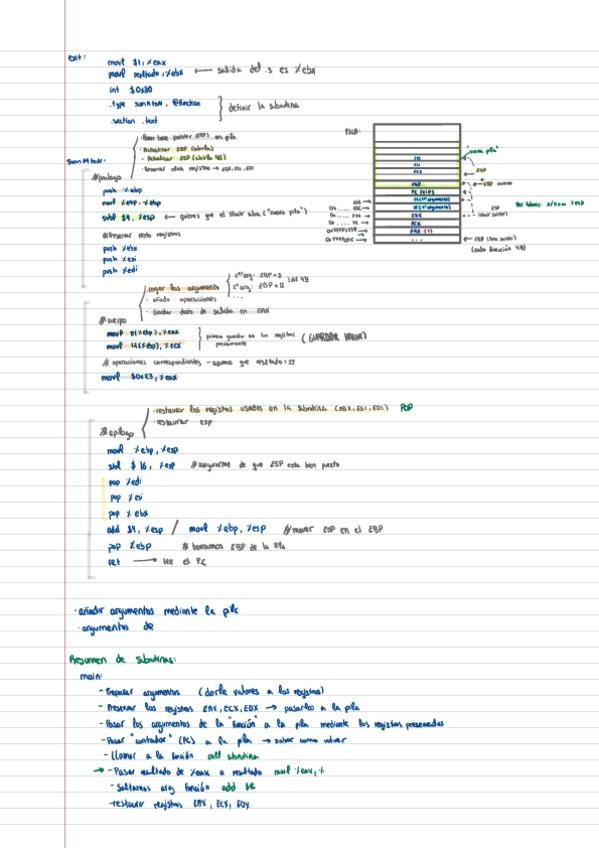 exit:
movl $1, %eax
movl resultado, %ebx ← salida del .s es %ebx
int $0x80
.type sumMtoN, @function
.section .text
} definir la subrutina
- Pasar base pointer (EBP) en pila
- Actualizar EBP
- Actualizar ESP
- Preservar
SumMtoN:
#prólogo
push %ebp
movl %esp, %ebp
subl $4, %esp ← quieres que el stack
#Preservar resto registros
push %ebx
push %esi
push %edi
PILA:
"nueva pila"
ESP
EBP
PC (EIP)
EDX
ECX
EAX
- coger los argumentos
1er arg: EBP + 8
2º arg: EBP + 12
- añado operaciones
- Guardar dato de salida en EAX
#cuerpo
movl 8(%ebp), %eax
movl 12(%ebp), %ecx
primero guardo en los registros previamente
(GUARDAR VALOR)
# operaciones correspondientes - que resultado = 23
movl $0x23, %eax
- restaurar los registros usados en la subrutina (EBX, ESI, EDI) POP
- restaurar esp
#epílogo
movl %ebp, %esp
subl $16, %esp #asegurarme de que ESP esta bien puesto
pop %edi
pop %esi
pop %ebx
add $4, %esp / movl %ebp, %esp //mover ESP en el EBP
pop %ebp # borramos EBP de la Pila
ret → lee el PC
- añadir argumentos mediante la pila
- argumentos de
Resumen de subrutinas:
main:
- Preparar argumentos (darle valores a los registros)
- Preservar los registros EAX, ECX, EDX → pasarlos a la pila
- Pasar los argumentos de la "función" a la pila mediante los registros preservados
- Pasar "contador" (PC) a la pila → saber como volver
- Llamar a la función call subrutina
→ - Pasar resultado de %eax a resultado movl %eax,
- Saltarnos arg función add $
- restaurar registros EAX, ECX, EDX